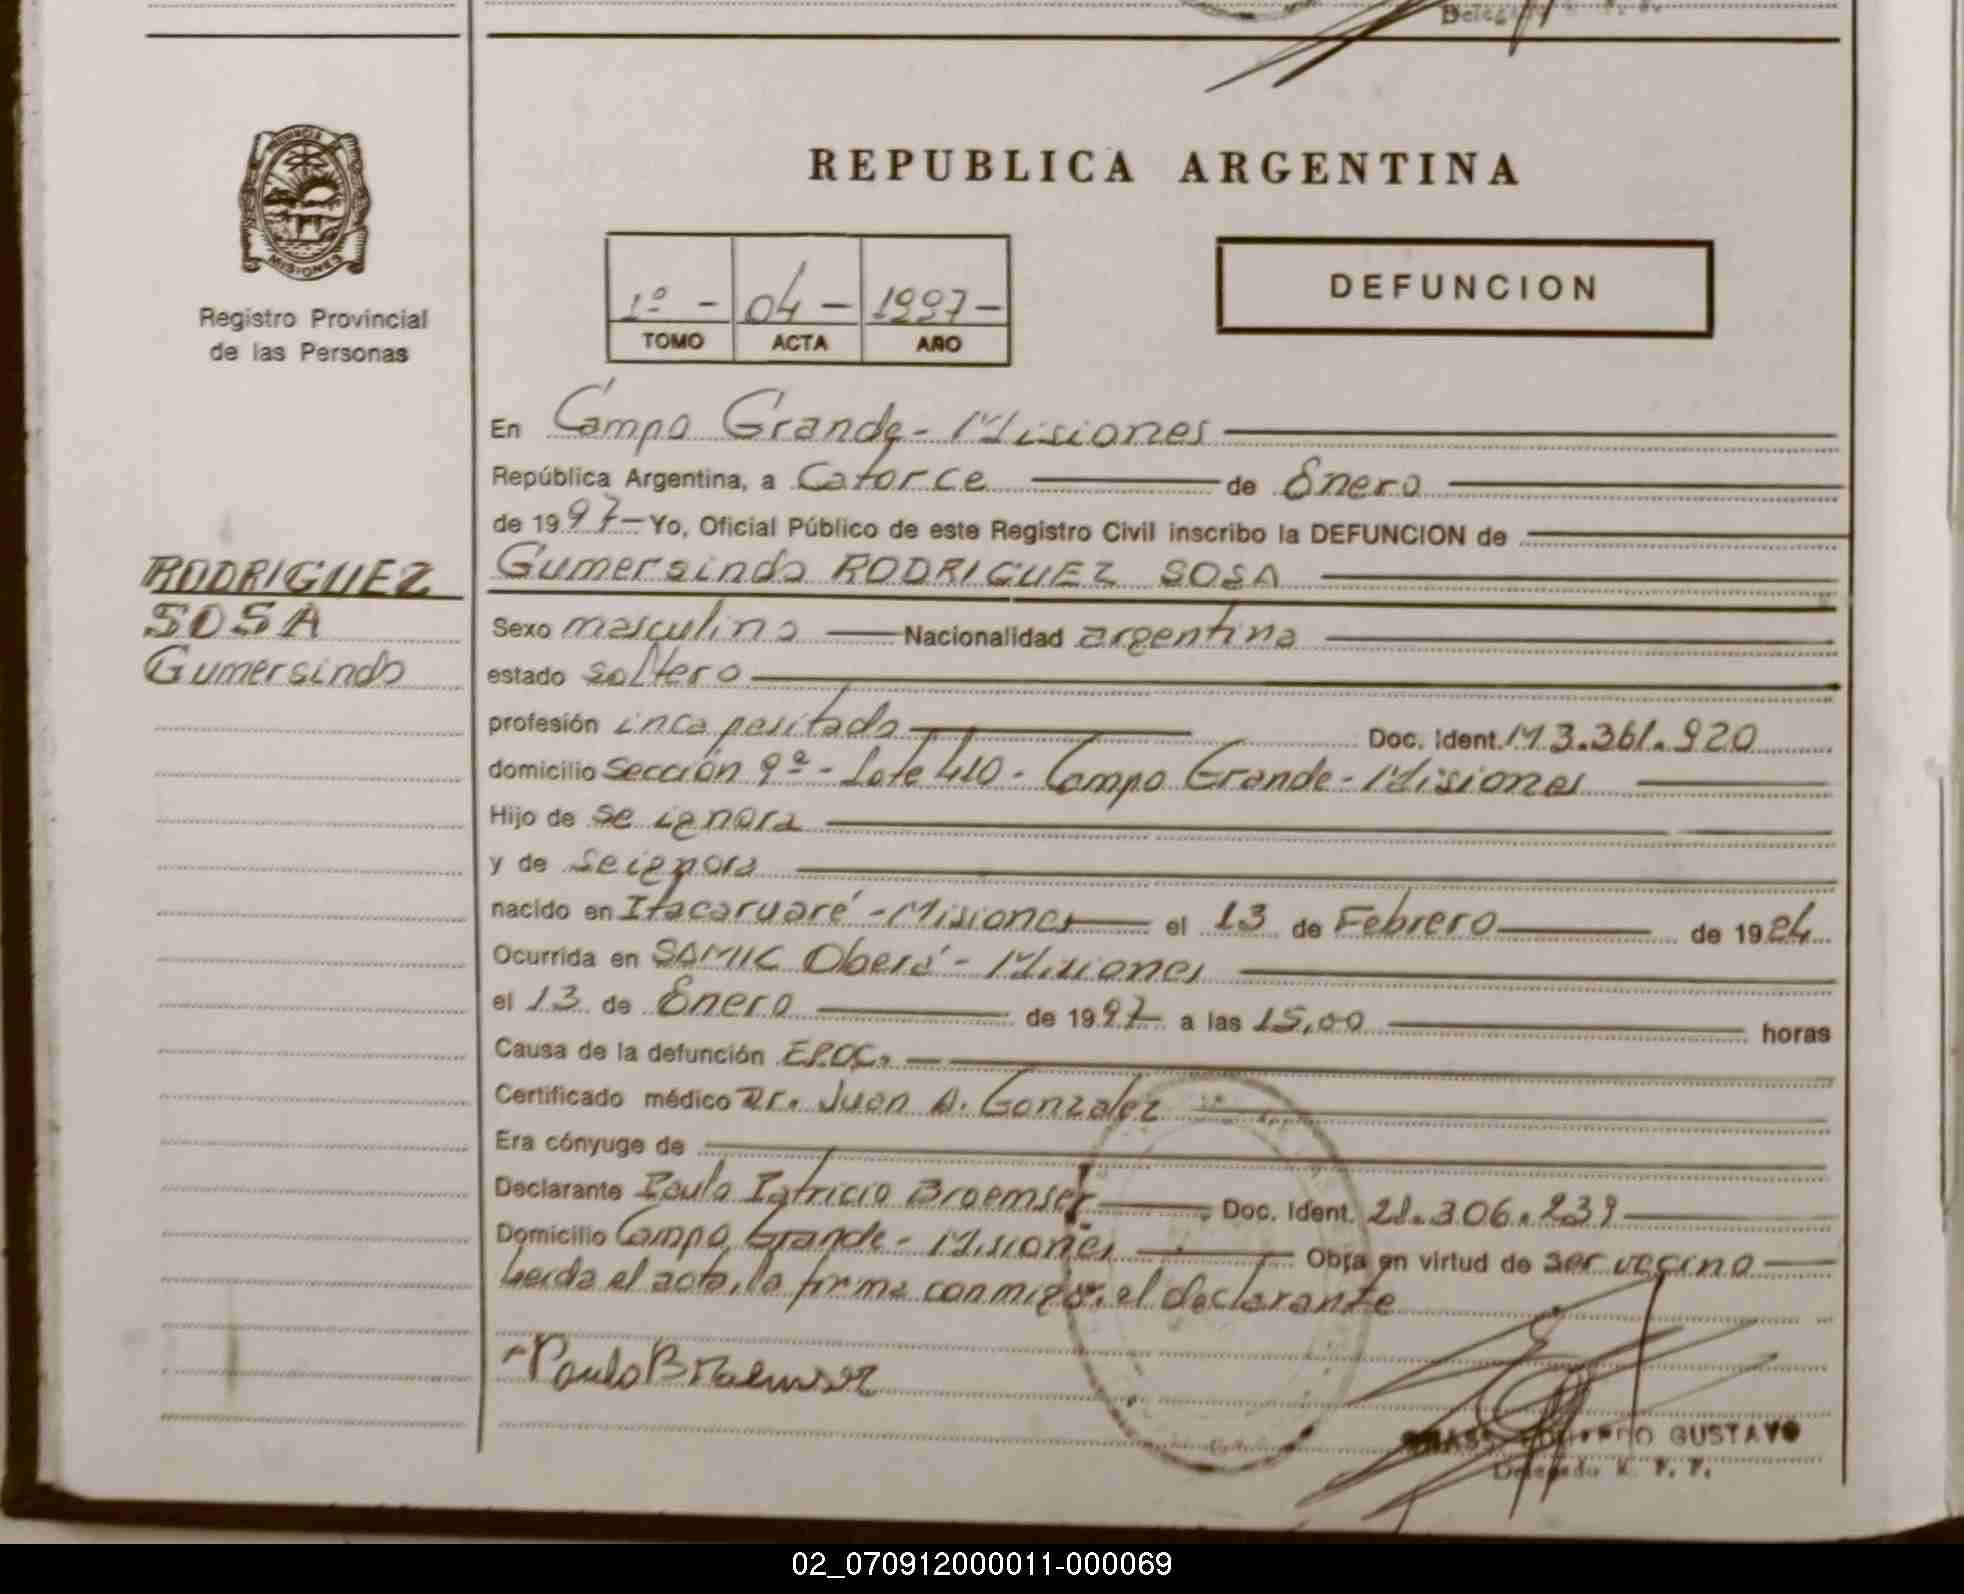 Delegado
PROVINCIA
MISIONES
REPUBLICA ARGENTINA
1º - 04 - 1997 -
TOMO ACTA AÑO
DEFUNCION
Registro Provincial
de las Personas
En Campo Grande - Misiones
República Argentina, a Catorce de Enero
de 1997 - Yo, Oficial Público de este Registro Civil inscribo la DEFUNCION de
RODRIGUEZ
SOSA
Gumersindo
Gumersindo RODRIGUEZ SOSA
Sexo masculino Nacionalidad argentina
estado soltero
profesión incapasitado Doc. Ident. M 3.361.920
domicilio Sección 9ª - Lote 410 - Campo Grande - Misiones
Hijo de se ignora
y de se ignora
nacido en Itacaruaré - Misiones el 13 de Febrero de 19
Ocurrida en SAMIC Oberá - Misiones
el 13 de Enero de 1997 a las 15,00 horas
Causa de la defunción EPOC.
Certificado médico Dr. Juan A. Gonzalez
Era cónyuge de
Declarante Paulo Patricio Braemser Doc. Ident. 21.306.239
Domicilio Campo Grande - Misiones Obra en virtud de ser vecino
Leida el acta, la firma conmigo, el declarante
Paulo Braemser
GUSTAVO
Delegado R. P. P.
02_070912000011-000069